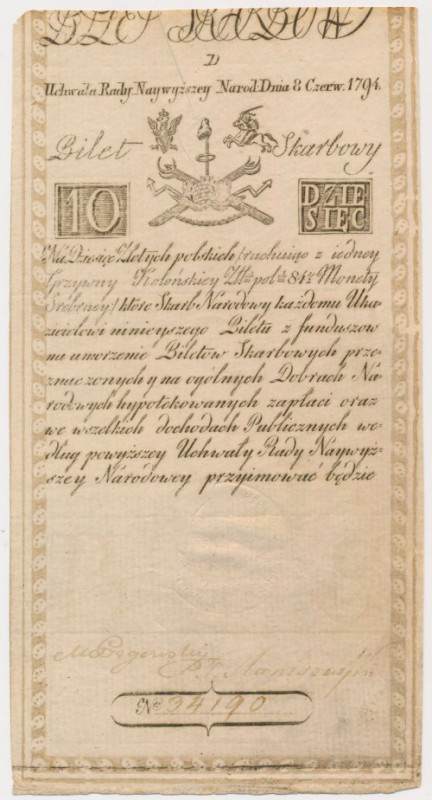 BILET SKARBOWY
D
Uchwała Rady Naywyższey Narod: Dnia 8 Czerw. 1794.
Bilet Skarbowy
10 DZIE
SIĘC
Na Dziesięc Złotych polskich / rachuiąc z iedney
Grzywny Kolońskiey Złł: pol: 84¼ Monety
Srebrney / które Skarb Narodowy każdemu Uka-
zicielowi ninieyszego Biletu z funduszow
na umorzenie Biletow Skarbowych prze-
znaczonych y na ogólnych Dobrach Na-
rodowych hypotekowanych zapłaci oraz
we wszelkich dochodach Publicznych we-
dług powyższey Uchwały Rady Naywyż-
szey Narodowey przyimować będzie
No 34190